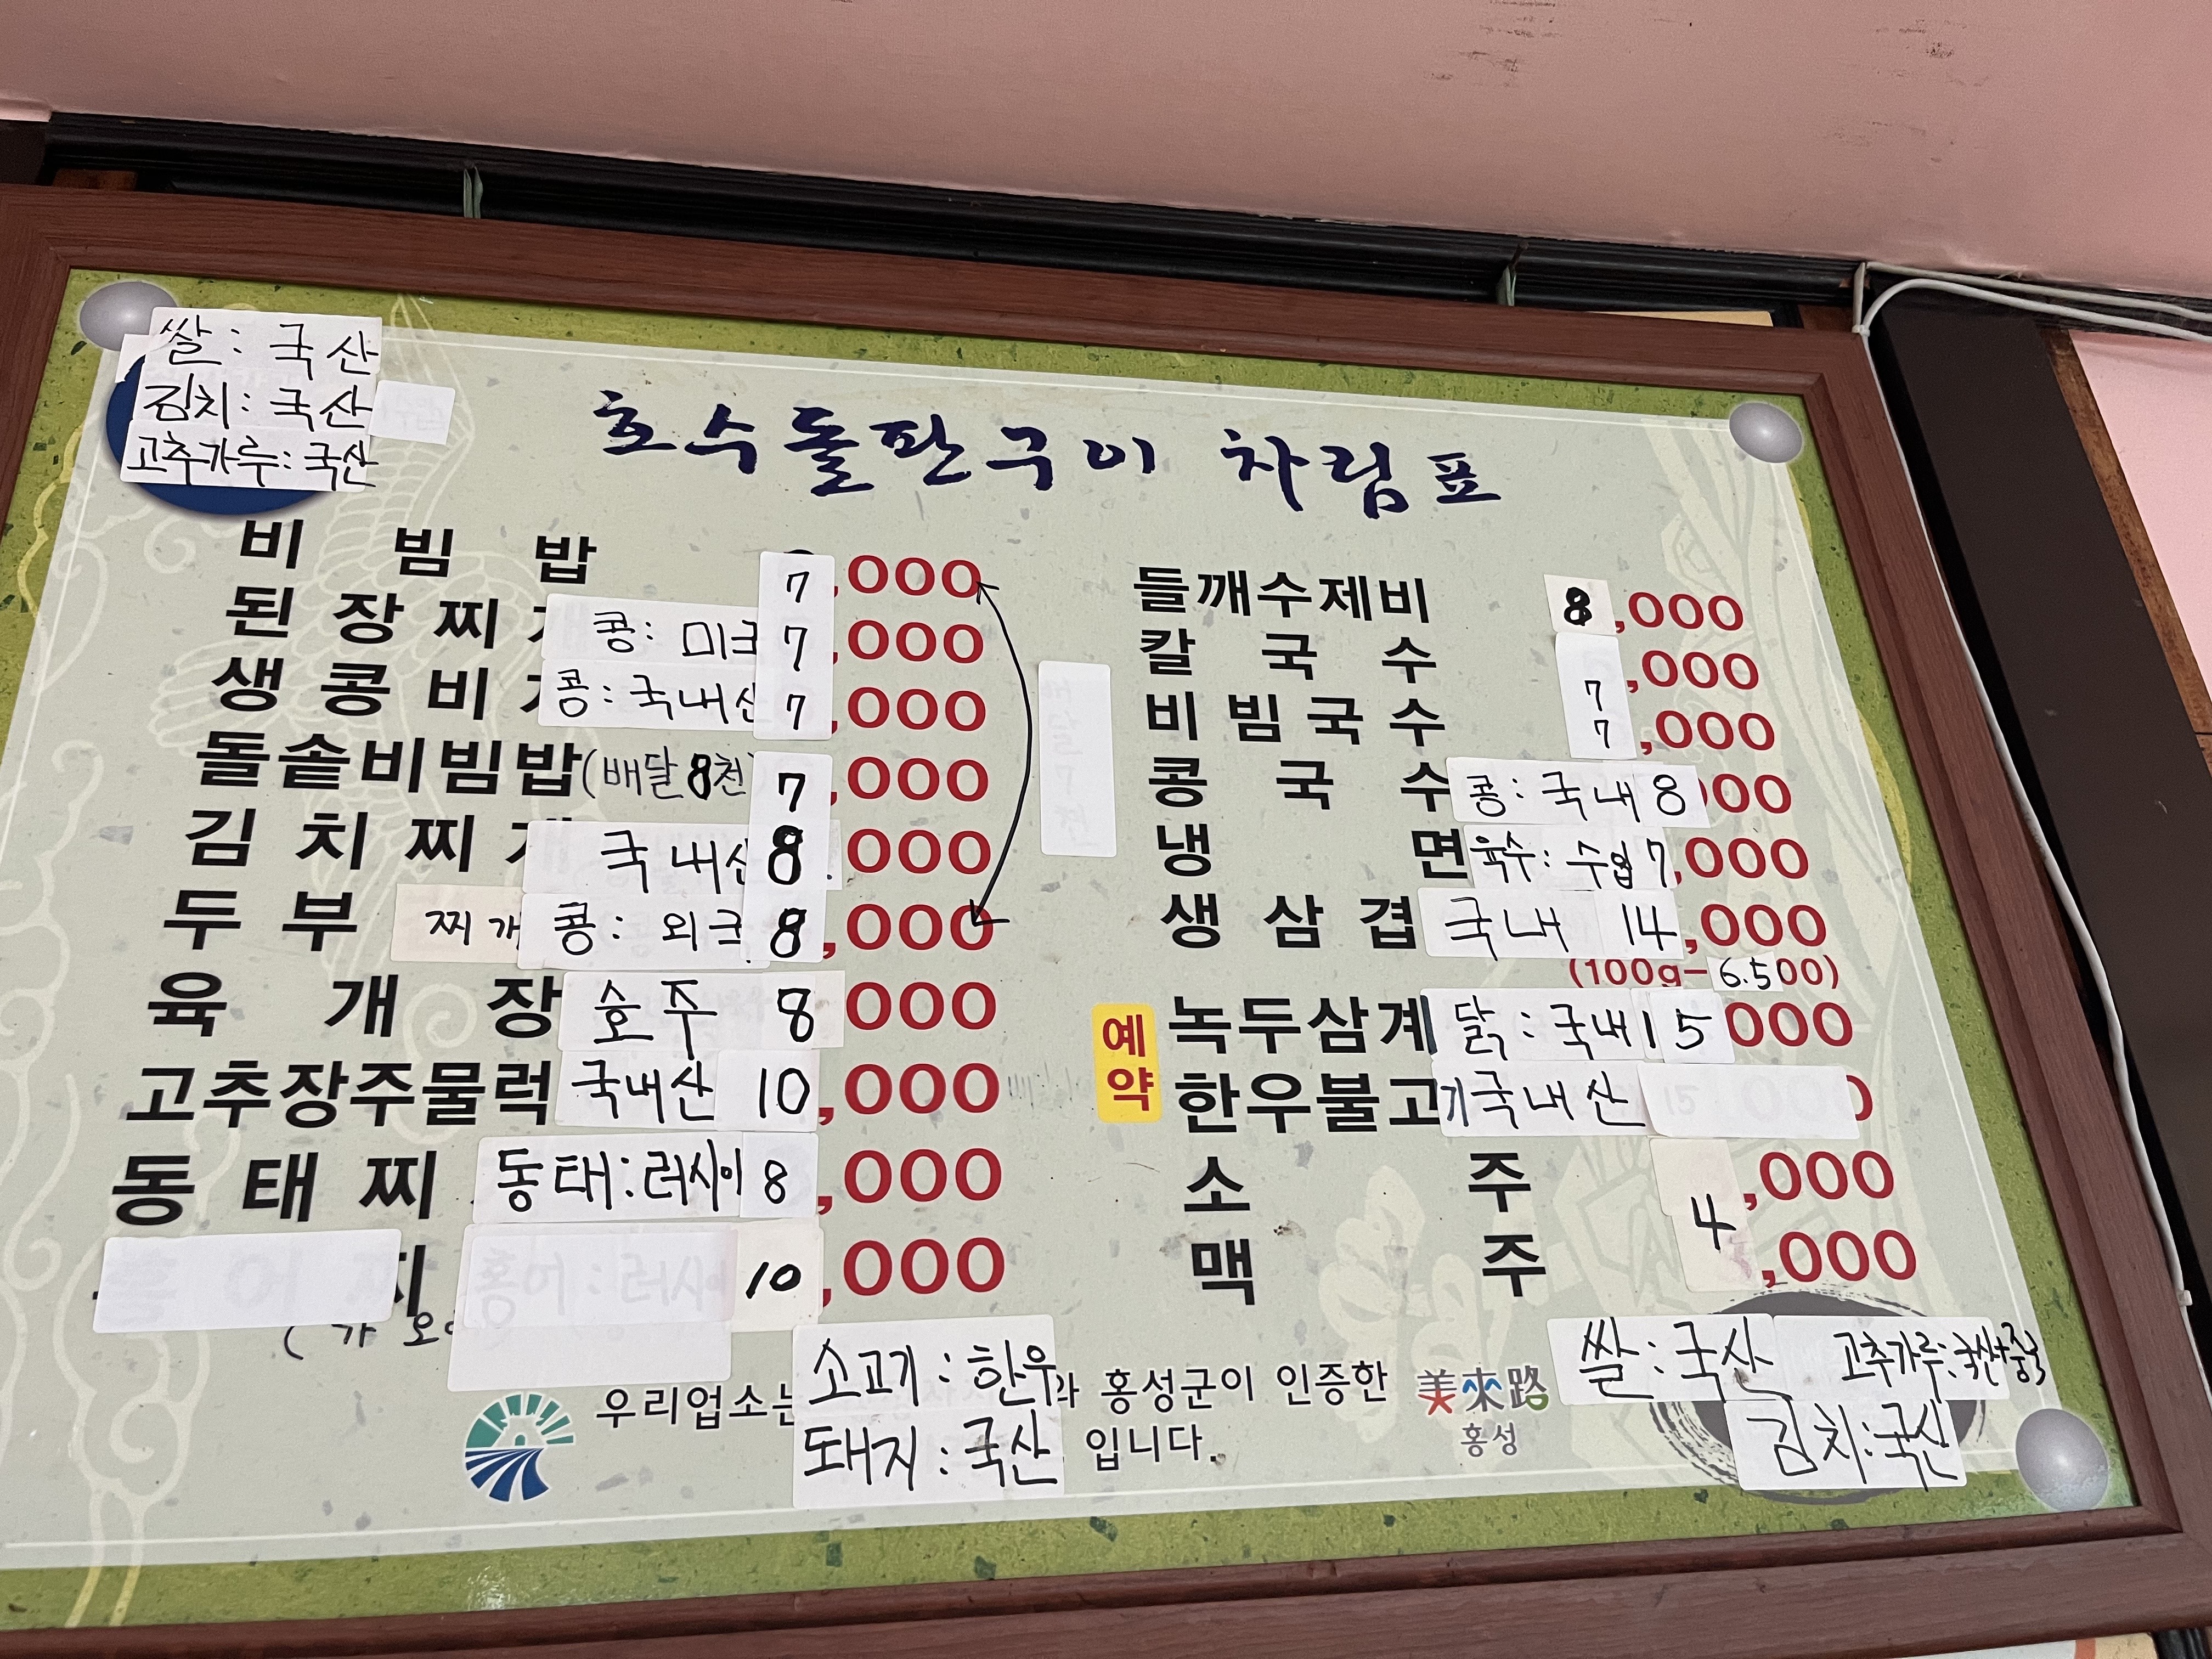 쌀: 국산
김치: 국산
고추가루: 국산
호수돌판구이 차림표
비 빔 밥 7,000
된 장 찌 콩: 미 7,000
생 콩 비 콩: 국내산 7,000
돌솥비빔밥(배달8천) 7,000
김 치 찌 국내산 8,000
두 부 찌개 콩: 외 8,000
육 개 장 호주 8,000
고추장주물럭 국내산 10,000
동 태 찌 동태: 러시아 8,000
10,000
들깨수제비 8,000
칼 국 수 7,000
비 빔 국 수 7,000
콩 국 수 콩: 국내 8,000
냉 면 육수: 수입 7,000
생 삼 겹 국내 14,000
(100g-6.500)
예약
녹두삼계 닭: 국내 15,000
한우불고기 국내산
소 주 4,000
맥 주 ,000
소고기: 한우
돼지: 국산
우리업소는 와 홍성군이 인증한
입니다.
美來路
홍성
쌀: 국산 고추가루: 국산+중국
김치: 국산